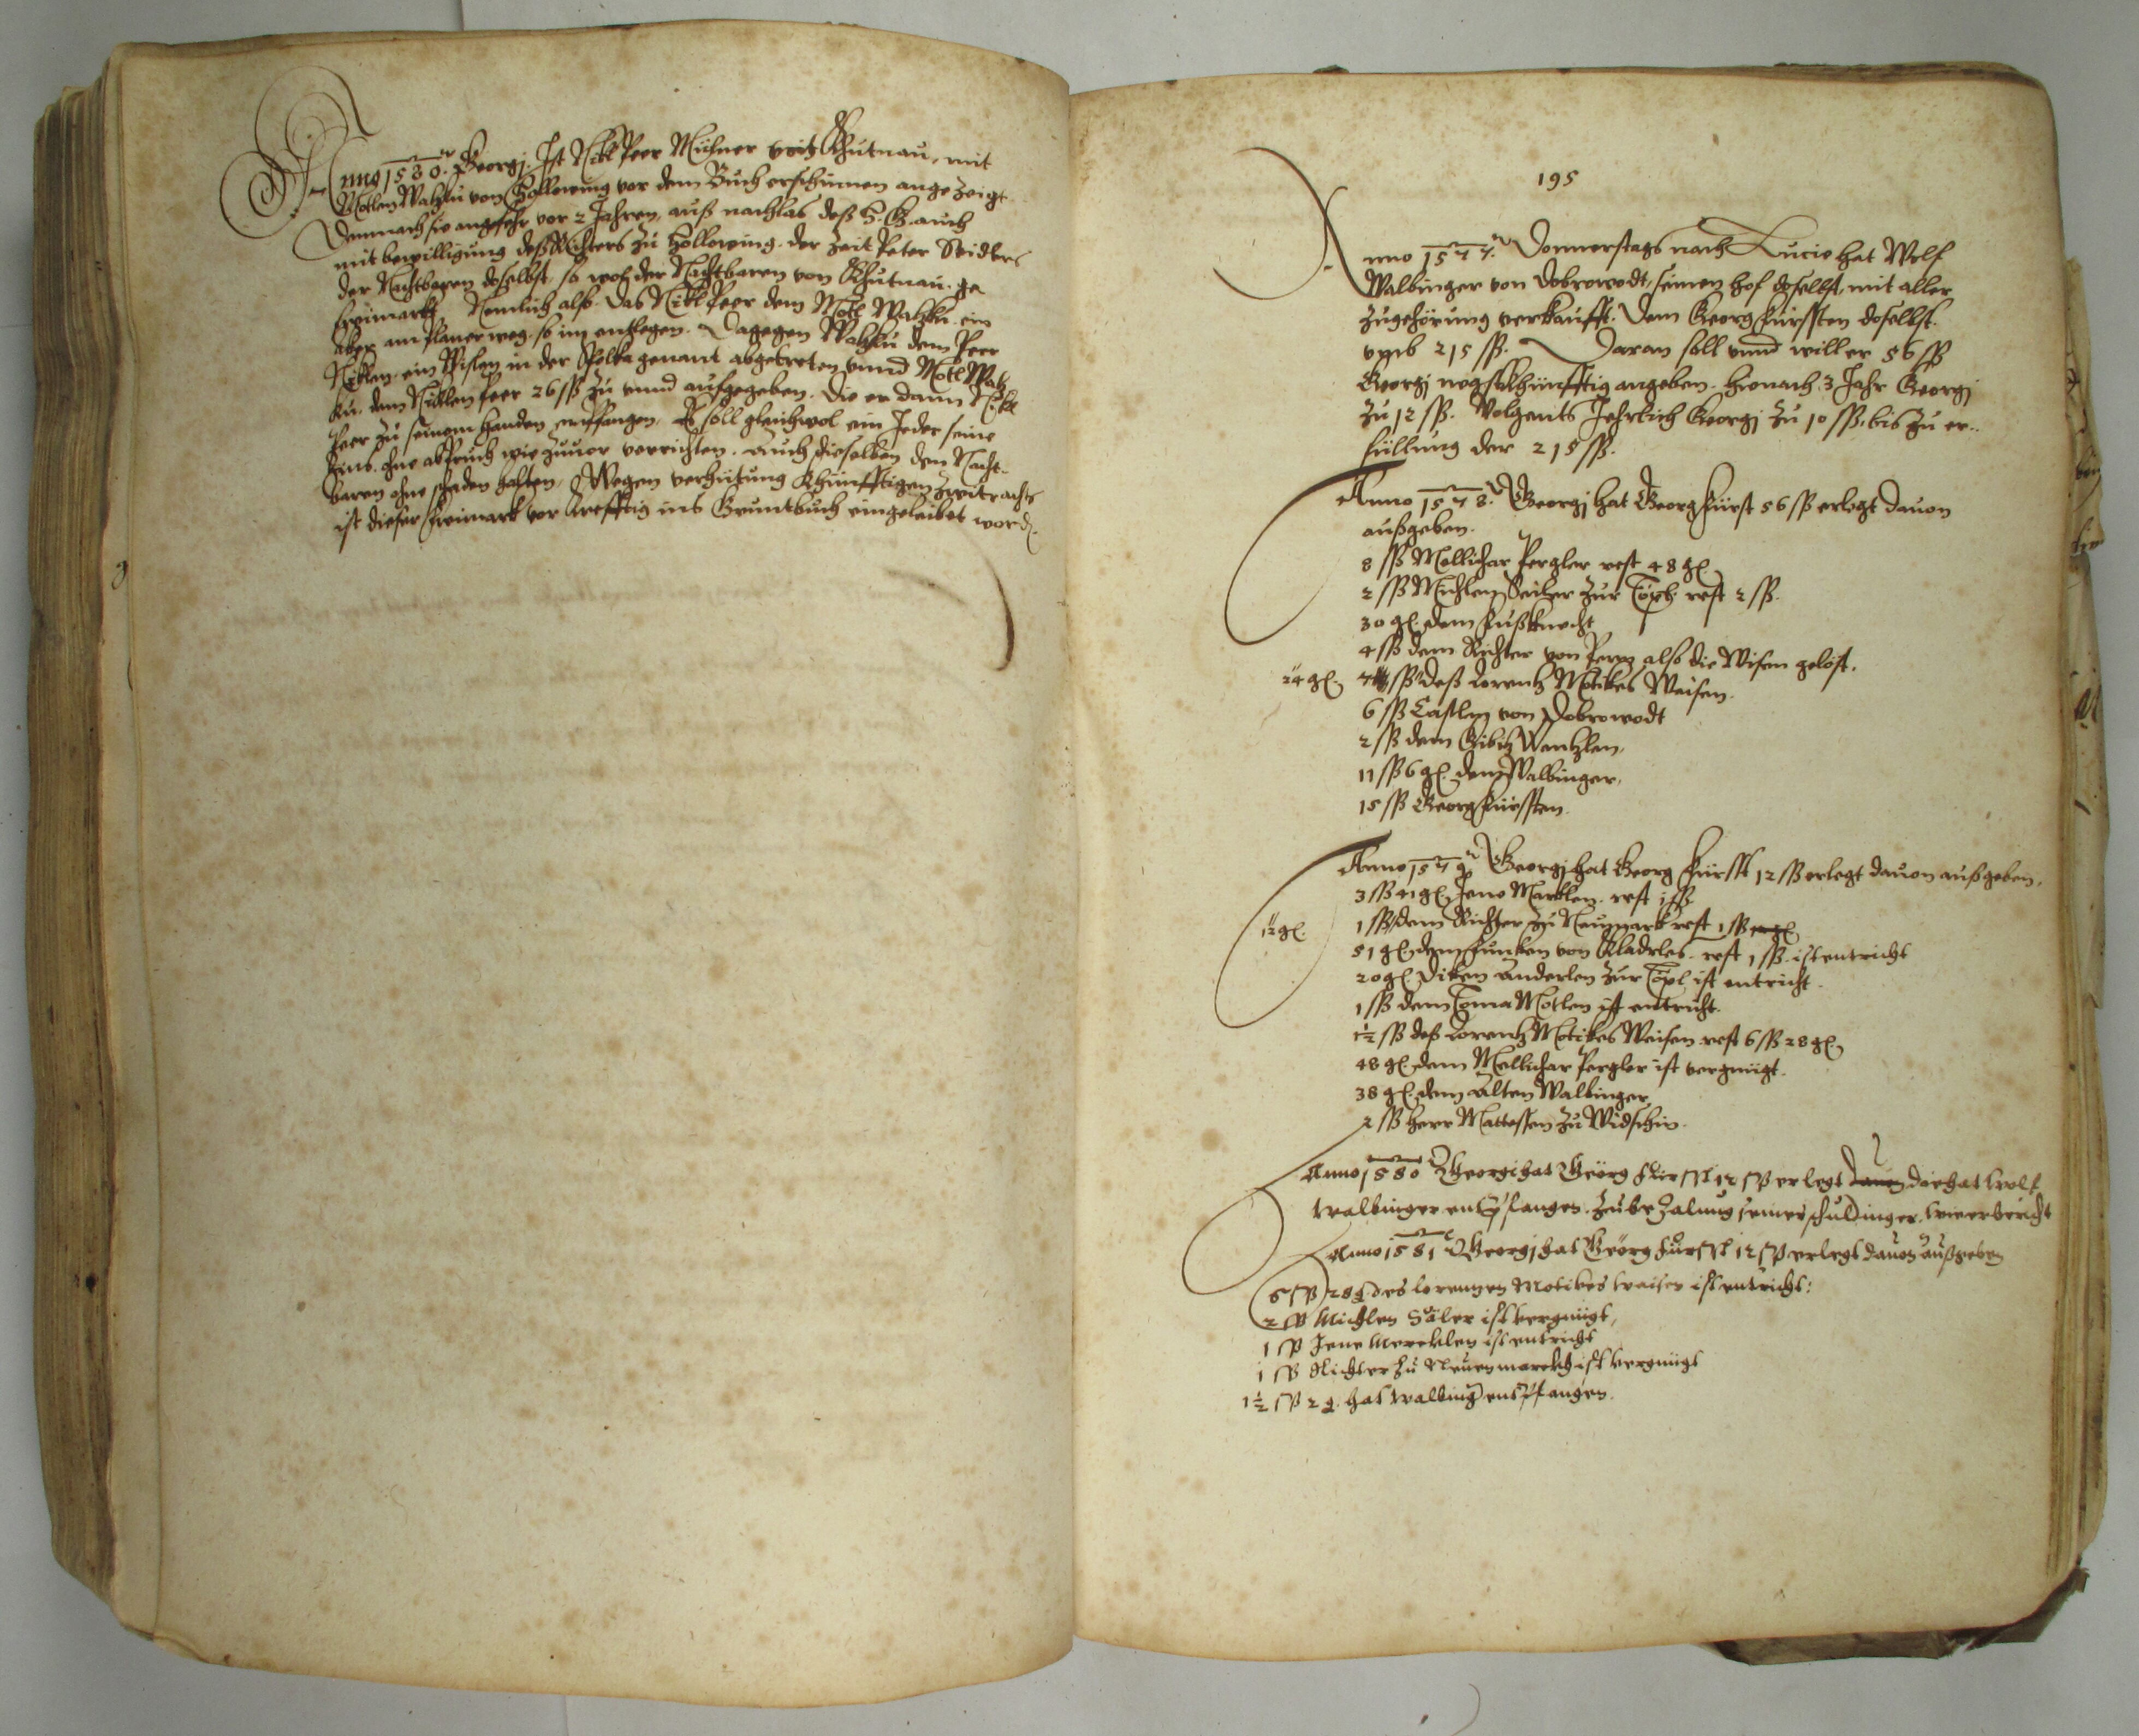 Anno 1580. Georgj. Ist Nikl Peer Müllner von Khutnau, mit
Motlen Walzku von Hollowing vor dem Buch erschinnen angezeigt
Demnach sie angefehr vor 2 Jahren, auß nachlas deß H. G. auch
mit bewilligung deß Richters zu Hollowing. der Zeit Peter Seidlers
der Nachtbaren doselbst, so wol der Nachtbaren von Khutnau. ge
freimarkt Nemlich also. Das Nikl Peer dem Motl Walzku. ein
aker am Planer weg. so im entlegen. Dagegen Walzku dem Peer
Niklen, ein Wisen in der Polka genant abgetreten vnnd Motl Walz
ku. dem Niklen Peer 26 ſß zu vnnd aufgegeben. die er dann Nikl
Peer zu seinem handen empfangen, Es soll gleichwol ein Jeder seine
Zins. ohne abbruch wie zuuor verrichten. Auch dieselben dem Nacht-
baren ohne schaden halten, Wegen verhütung khünfftigen Zwitrachts
ist dieser freimark vor krefftig ins Gruntbuch eingeleibet word.
195
Anno 1577. Donnerstags nach Lucie hat Wolf
Walbinger von Dobrowodt, seinen hof doselbst, mit aller
zugehörung verkaufft. Dem Georg fürssten doselbst.
vmb 215 ſß. Daran soll vnnd will er 56 ſß
Georgj negst khünfftig angeben. hienach 3 Jahr Georgj
zu 12 ſß. Volgents Jehrlich Georgj zu 10 ſß. bis zu er-
füllung der 215 ſß.
Anno 1578. Georgj hat Georg fürst 56 ſß erlegt dauon
außgeben.
8 ſß Mellichar Pergler rest 48 gl
2 ſß Michlen Seiler zur Töpl rest 2 ſß.
30 gl. dem fußknecht
4 ſß dem Richter von also die Wisen gelöst.
24 gl. 7 ſß deß Lorentz Motikes Waisen.
6 ſß Castlen von Dobrowodt
2 ſß dem Wentzlen,
11 ſß 6 gl. dem Walbinger,
15 ſß Georg fürssten.
Anno 1579 Georgj hat Georg fürsst 12 ſß erlegt dauon außgeben.
3 ſß 41 gl Jene Marklen. rest 1 ſß
12 gl. 1 ſß dem Richter zu Neumark rest 1 ſß
51 gl. dem funken von Kladrles. rest 1 ſß. ist entricht
20 gl. Diken Anderlen zur Töpl ist entricht.
1 ſß dem Toma Motlen ist entricht.
1½ ſß deß Lorentz Motikes Waisen rest 6 ſß 28 gl.
48 gl. dem Mellichar Pergler ist vergnügt.
38 gl. dem Alten Walbinger
2 ſß herr Mattessen zu Widschin.
Anno 1580 Georgi hat Georg fürsst 12 ſß erlegt dauon die hat Wolf
Walbinger entpfangen. Zu bezalung seiner schuldinger. wie er bericht
Anno 1581 Georgj hat Georg fürsst 12 ſß erlegt dauon außgeben
6 ſß 28 g. des lorentzen Motikes waisen ist entricht:
2 ſß Michlen Säler ist vergnügt,
1 ſß Jene Mereklen ist entricht
1 ſß Richter zu Neuenmarckh ist vergnügt
1½ ſß 2 g. hat Walbing entpfangen.